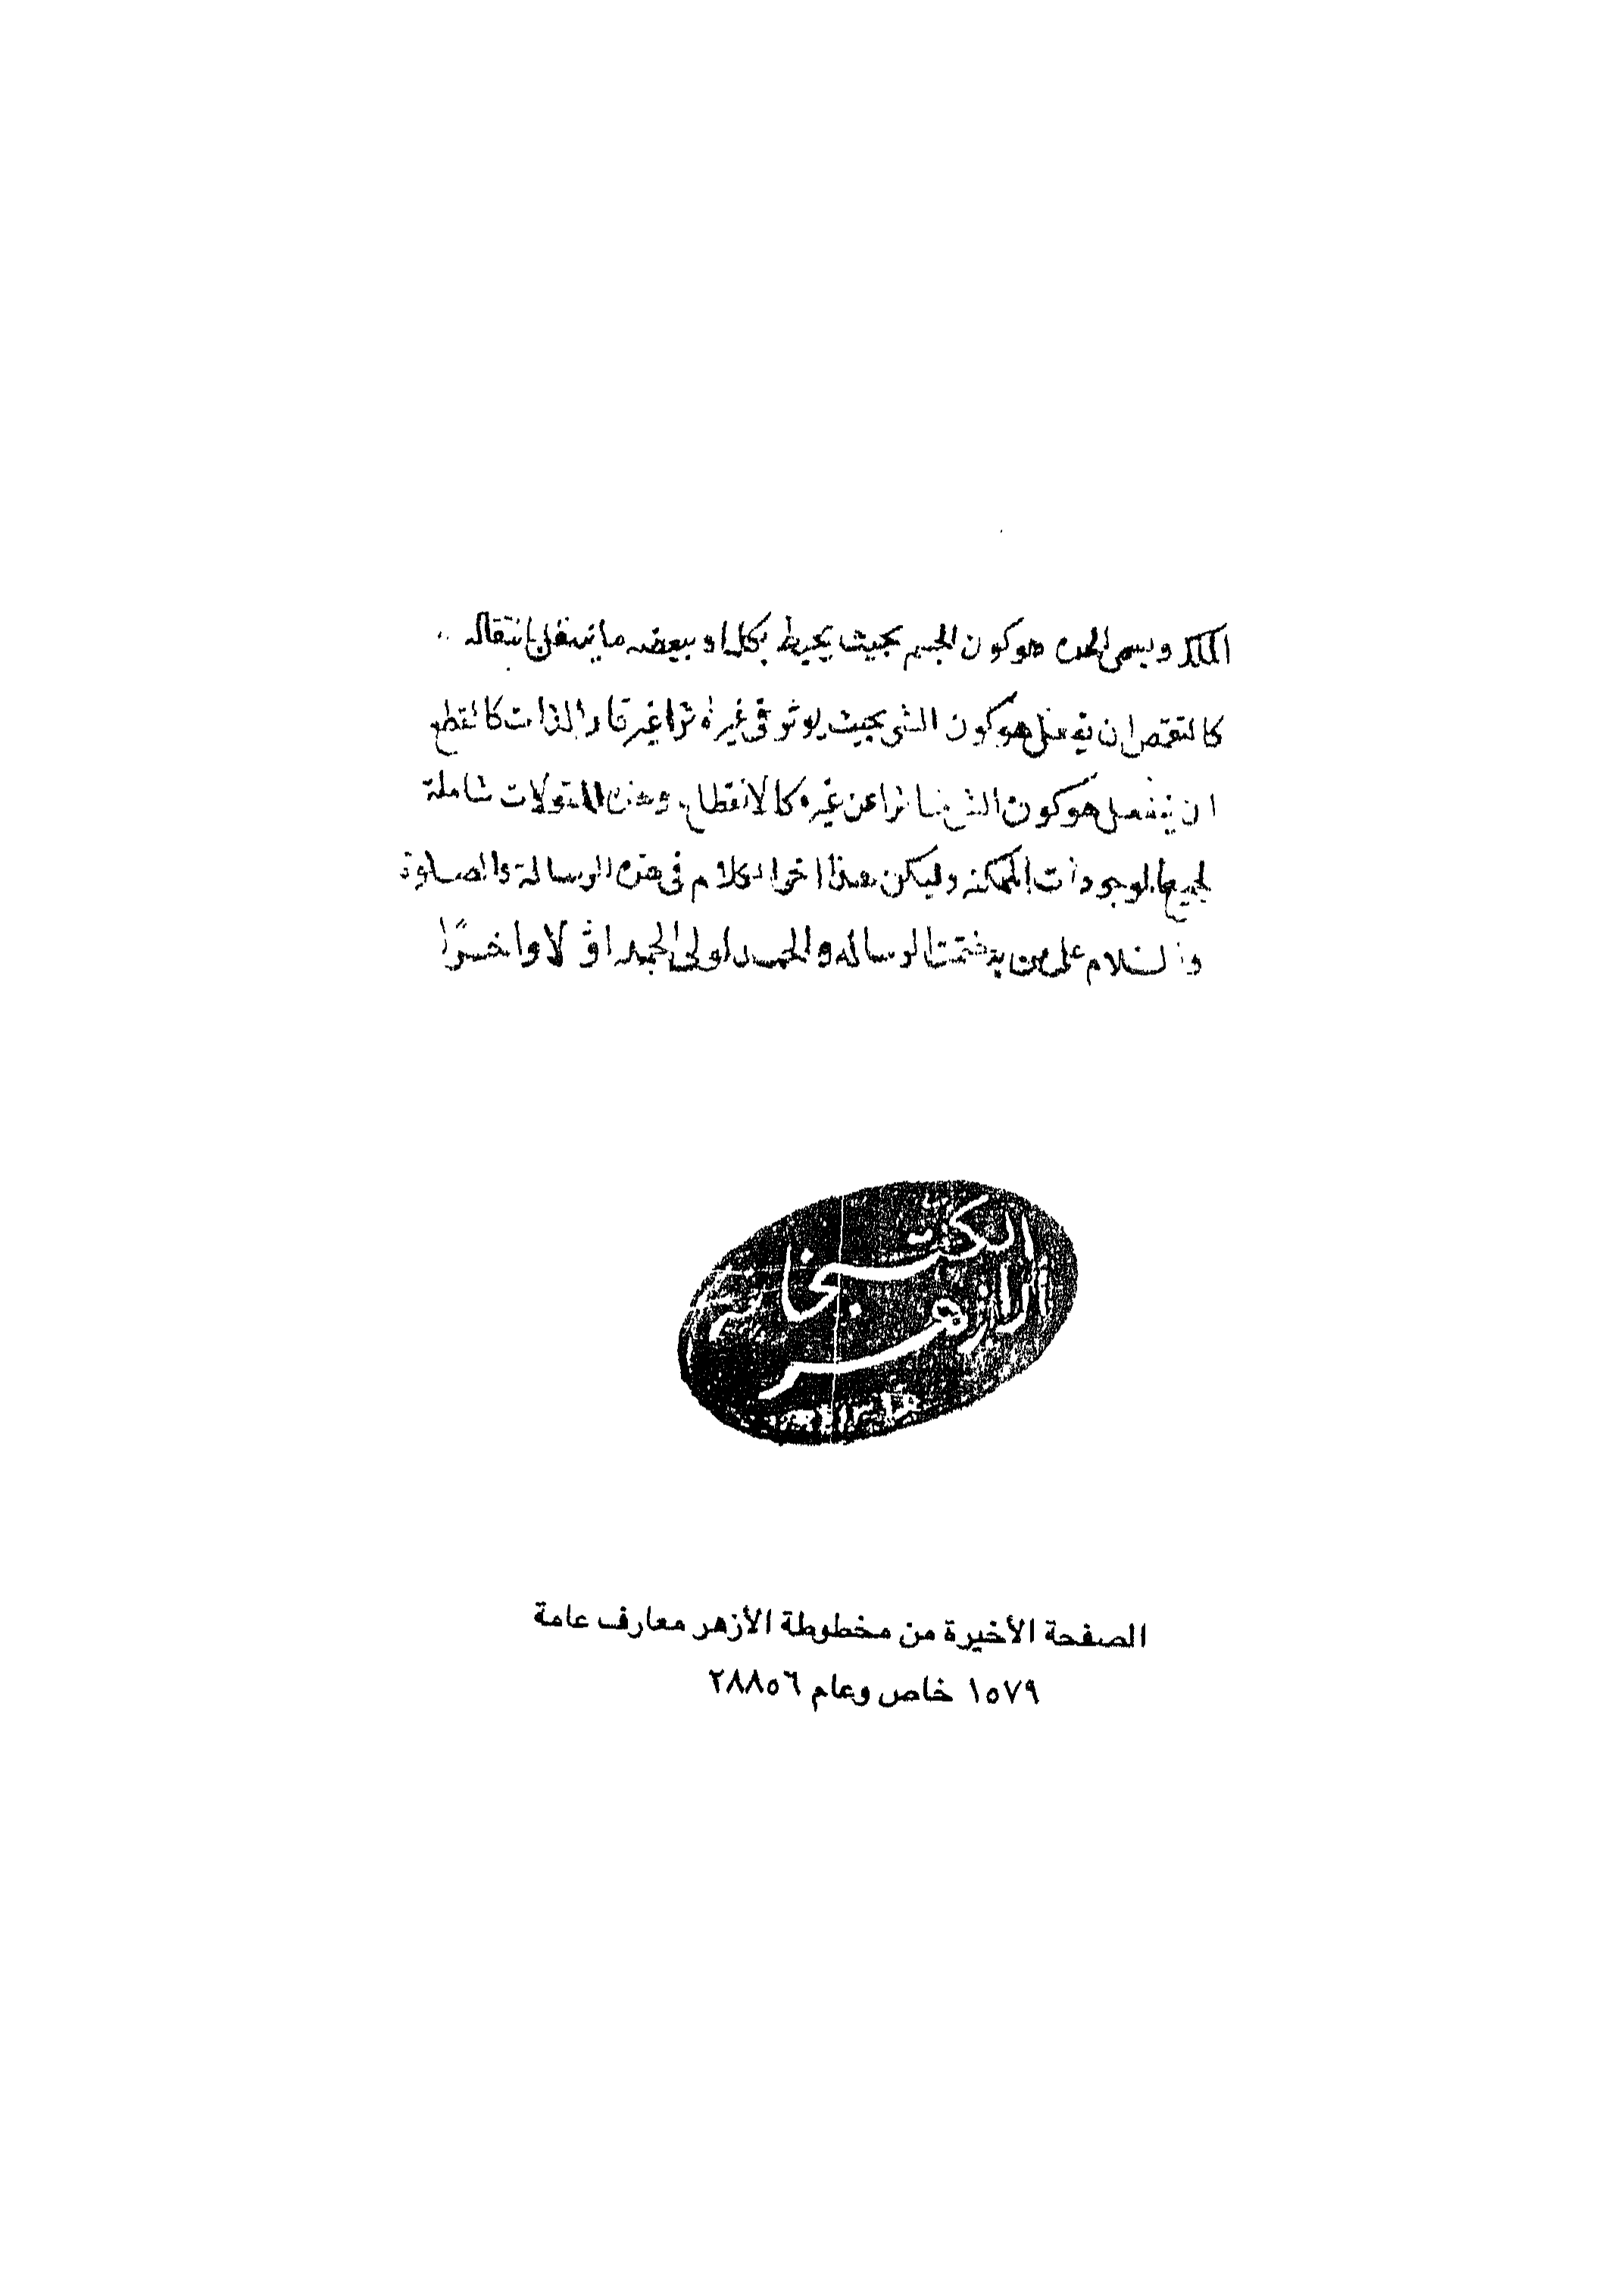 الملك ويسمى الجدة هو كون الجسم بحيث يحيط بكله او ببعضه ما ينتقل بانتقاله
كالتقمص ان يفعل هو كون الشي بحيث يوثر في غيره اثرا غير قار الذات كالقطع
ان ينفعل هو كون الشي متاثرا عن غيره كالانقطاع وهذه المقولات شاملة
لجميع الموجودات الممكنه وليكن هذا اخر الكلام في هذه الرسالة والصلوة
والسلام على من به ختمت الرساله والحمد لولى الحمد اوّلا واخرًا
الكتبخانه
الازهر
الصفحة الأخيرة من مخطوطة الأزهر معارف عامة
١٥٧٩ خاص وعام ٢٨٨٥٦